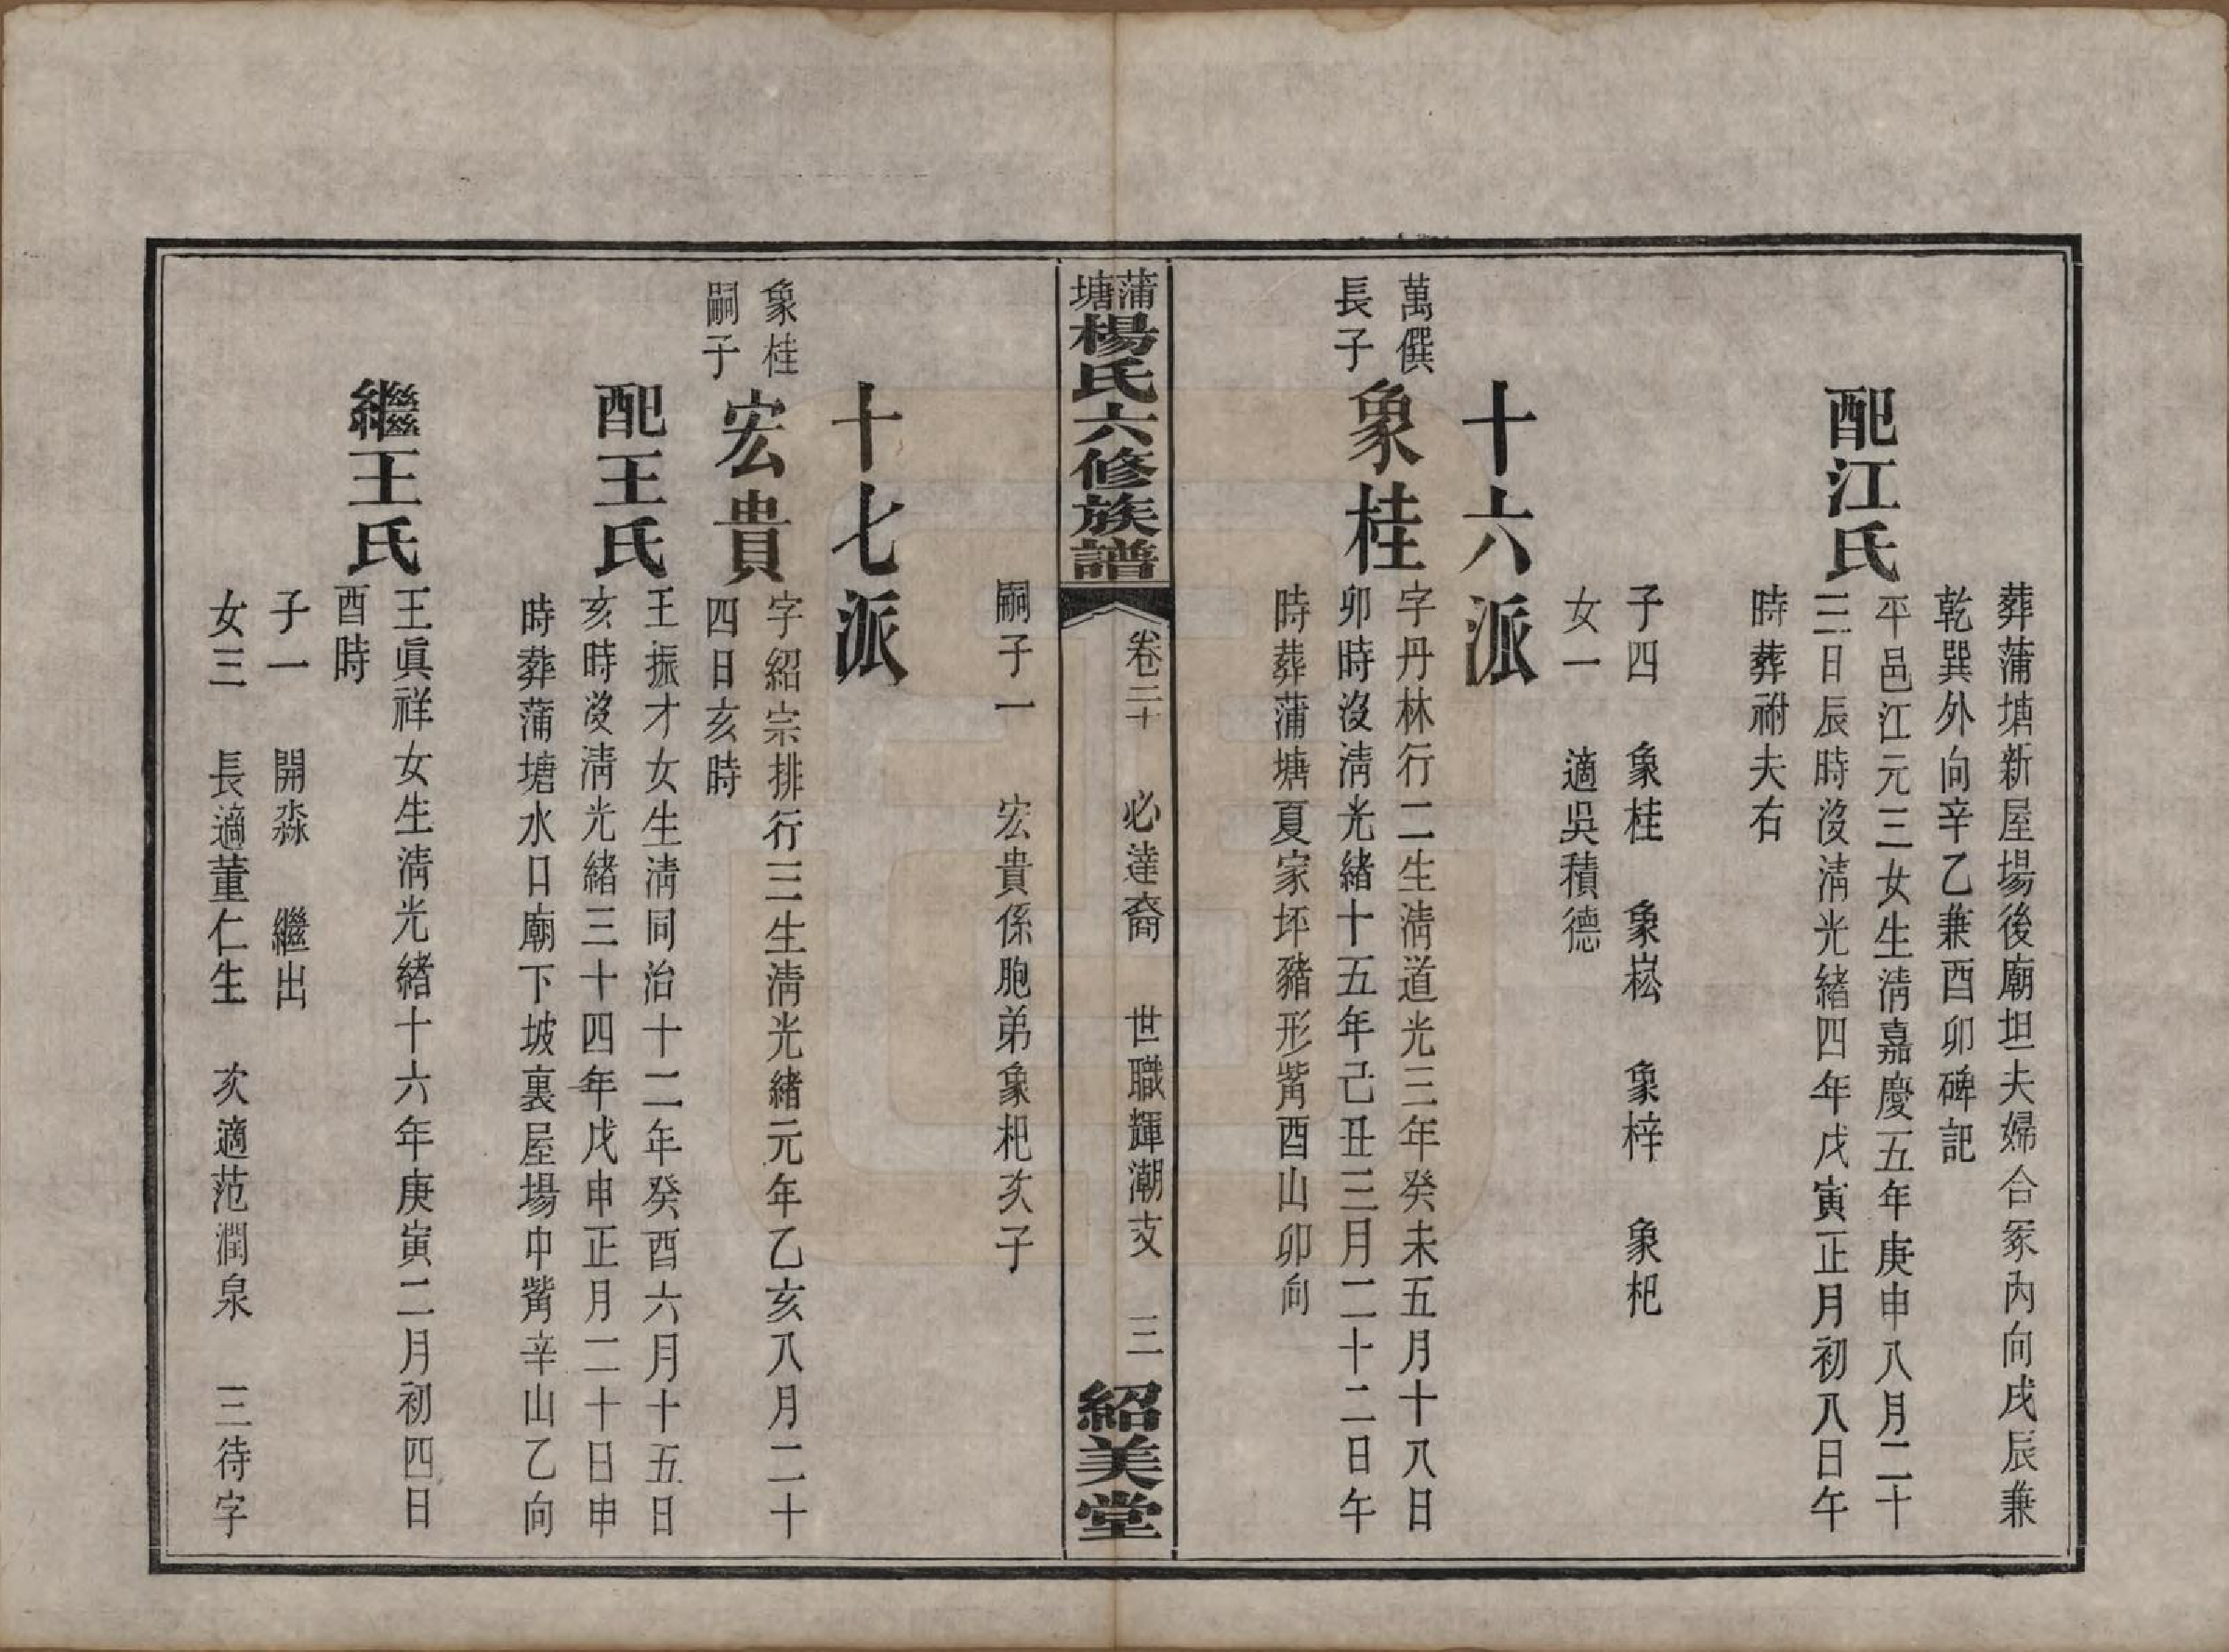 葬蒲塘新屋場後廟坦夫婦合冢內向戌辰兼
乾巽外向辛乙兼酉卯碑記
配江氏
平邑江元三女生淸嘉慶五年庚申八月二十
三日辰時沒淸光緒四年戊寅正月初八日午
時葬祔夫右
子四　象桂　象崧　象梓　象杷
女一　適吳積德
十六派
萬僎
長子
象桂
字丹林行二生淸道光三年癸未五月十八日
卯時沒淸光緒十五年己丑三月二十二日午
時葬蒲塘夏家坪豬形觜酉山卯向
蒲塘楊氏六修族譜
卷二十　必達裔　世職輝潮支　三
紹美堂
嗣子一　宏貴係胞弟象杷次子
十七派
象桂
嗣子
宏貴
字紹宗排行三生淸光緒元年乙亥八月二十
四日亥時
配王氏
王振才女生淸同治十二年癸酉六月十五日
亥時沒淸光緒三十四年戊申正月二十日申
時葬蒲塘水口廟下坡裏屋場中觜辛山乙向
繼王氏
王眞祥女生淸光緒十六年庚寅二月初四日
酉時
子一　開淼　繼出
女三　長適董仁生　次適范潤泉　三待字